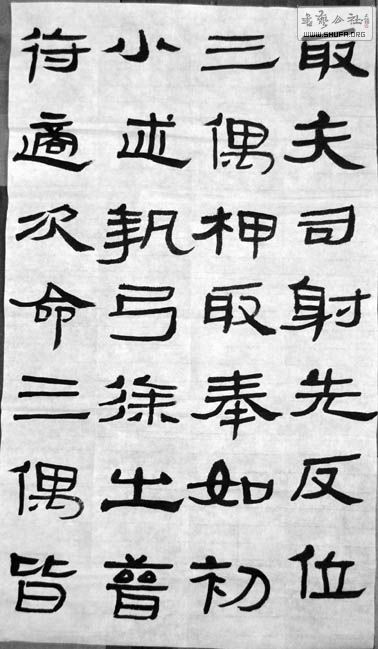 書藝公社
WWW.SHUFA.ORG
取夫司射先反位
三偶柙取奉如初
小述執弓徐出
待適次命三偶皆